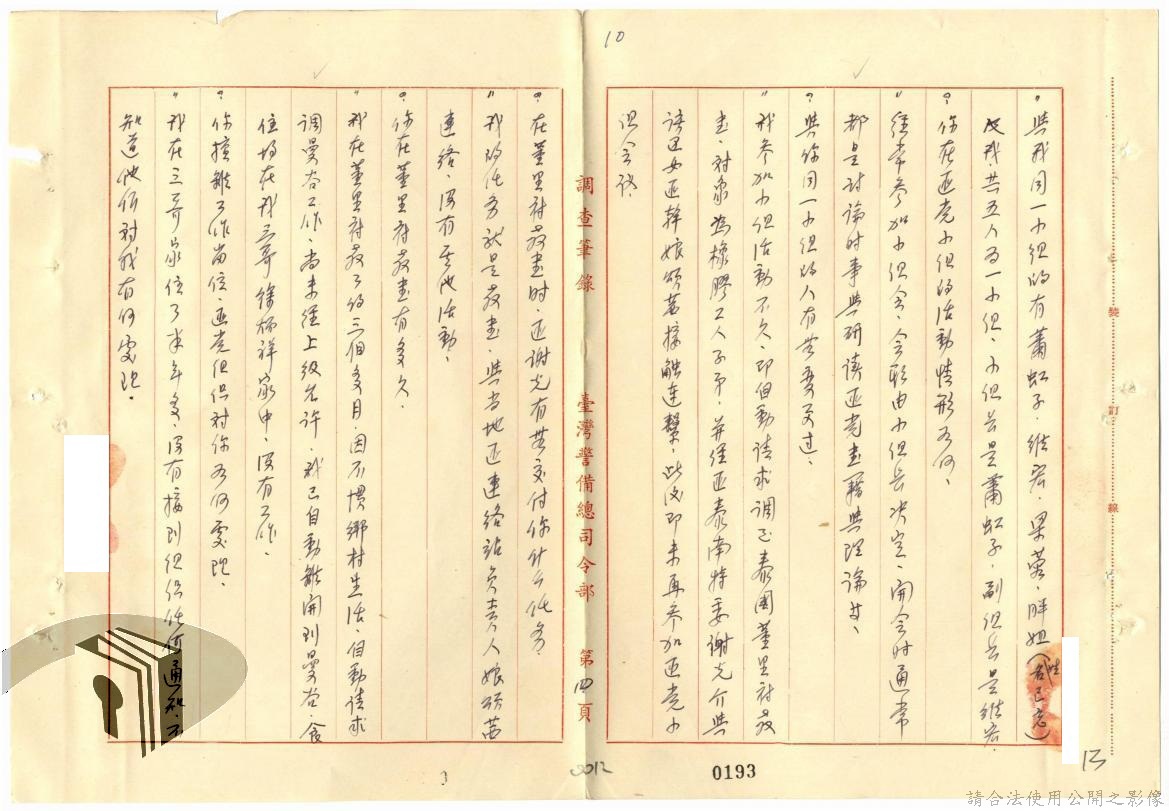 10
〃與我同一小組的有蕭虹子、維宏、梁蓉、胖妞(姓名已忘)
及我共五人為一小組、小組長是蕭虹子、副組長是維宏、
?你在匪党小組的活動情形為何、
〃經常參加小組會、會期由小組長決定、開會時通常
都是討論時事與研讀匪党書籍與理論等、
?與你同一小組的人有無變更過、
〃我參加小組活動不久、即自動請求調至泰國董里府教
書、對象為橡膠工人子弟、并經匪泰南特委謝光介與
該匪女匪幹娘頌茜接触連繫、此後即未再參加匪党小
組會議、
調查筆錄
臺灣警備總司令部
第四頁
?在董里府教書時、匪謝光有無交付你什么任務、
〃我的任務就是教書、與當地匪連絡站負責人娘頌茜
連絡、沒有其他活動、
?你在董里府教書有多久、
〃我在董里府教了約三個多月、因不慣鄉村生活、自動請求
調曼谷工作、尚未經上級允許、我已自動離開到曼谷、食
住均在我三哥徐炳祥家中、沒有工作、
?你擅離工作崗位、匪党組織對你為何處理、
〃我在三哥家住了半年多、沒有接到組織任何通知、不
知道他們對我有何處理、
裝
訂
線
0012
0193
13
請合法使用公開之影像